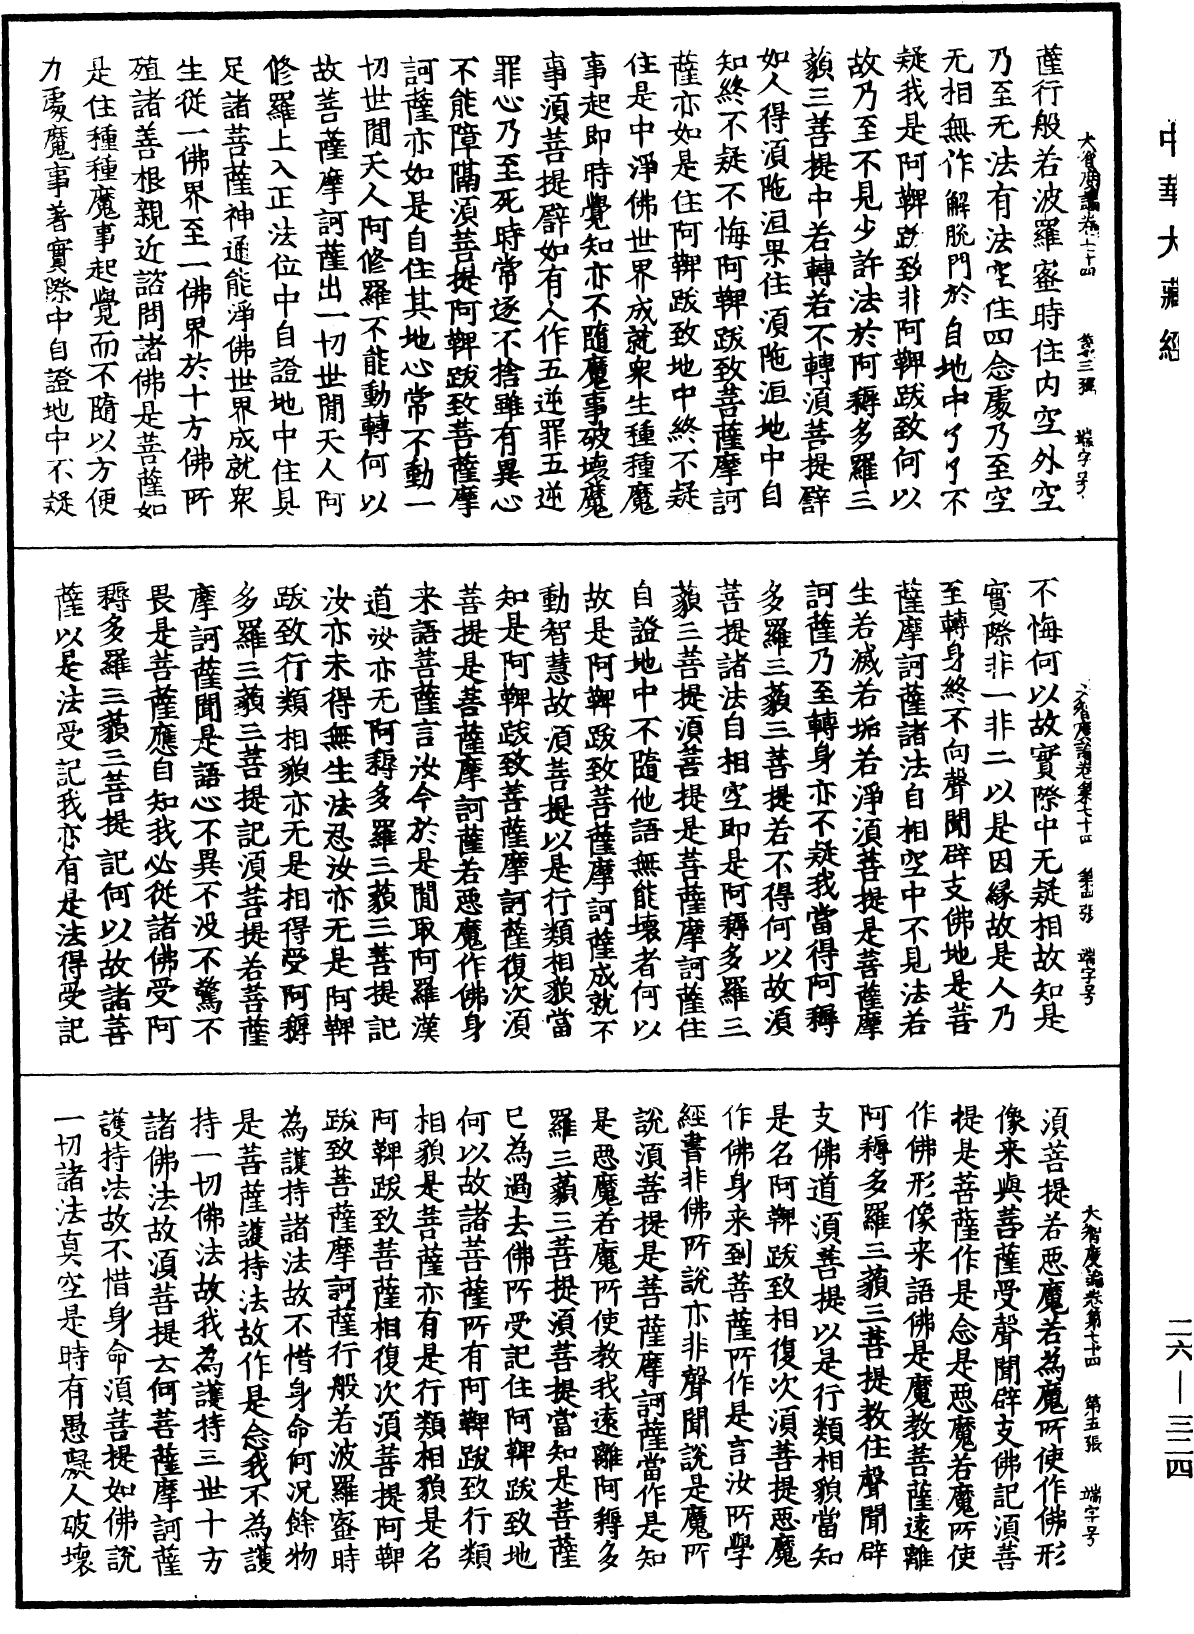 中華大藏經
大智度論卷七十四 第三張 端字号
薩行般若波羅蜜時住内空外空
乃至无法有法空住四念處乃至空
无相無作解脫門於自地中了了不
疑我是阿鞞跋致非阿鞞跋致何以
故乃至不見少許法於阿耨多羅三
藐三菩提中若轉若不轉須菩提譬
如人得須陁洹果住須陁洹地中自
知終不疑不悔阿鞞跋致菩薩摩訶
薩亦如是住阿鞞跋致地中終不疑
住是中淨佛世界成就衆生種種魔
事起即時覺知亦不隨魔事破壞魔
事須菩提譬如有人作五逆罪五逆
罪心乃至死時常逐不捨雖有異心
不能障隔須菩提阿鞞跋致菩薩摩
訶薩亦如是自住其地心常不動一
切世間天人阿修羅不能動轉何以
故菩薩摩訶薩出一切世間天人阿
修羅上入正法位中自證地中住具
足諸菩薩神通能淨佛世界成就衆
生從一佛界至一佛界於十方佛所
殖諸善根親近諮問諸佛是菩薩如
是住種種魔事起覺而不隨以方便
力處魔事著實際中自證地中不疑
大智度論卷第七十四 第四張 端字号
不悔何以故實際中无疑相故知是
實際非一非二以是因緣故是人乃
至轉身終不向聲聞辟支佛地是菩
薩摩訶薩諸法自相空中不見法若
生若滅若垢若淨須菩提是菩薩摩
訶薩乃至轉身亦不疑我當得阿耨
多羅三藐三菩提若不得何以故須
菩提諸法自相空即是阿耨多羅三
藐三菩提須菩提是菩薩摩訶薩住
自證地中不隨他語無能壞者何以
故是阿鞞跋致菩薩摩訶薩成就不
動智慧故須菩提以是行類相貌當
知是阿鞞跋致菩薩摩訶薩復次須
菩提是菩薩摩訶薩若惡魔作佛身
来語菩薩言汝今於是間取阿羅漢
道汝亦无阿耨多羅三藐三菩提記
汝亦未得無生法忍汝亦无是阿鞞
跋致行類相貌亦无是相得受阿耨
多羅三藐三菩提記須菩提若菩薩
摩訶薩聞是語心不異不没不驚不
畏是菩薩應自知我必從諸佛受阿
耨多羅三藐三菩提記何以故諸菩
薩以是法受記我亦有是法得受記
大智度論卷第七十四 第五張 端字号
須菩提若惡魔若為魔所使作佛形
像来與菩薩受聲聞辟支佛記須菩
提是菩薩作是念是惡魔若魔所使
作佛形像来語佛是魔教菩薩遠離
阿耨多羅三藐三菩提教住聲聞辟
支佛道須菩提以是行類相貌當知
是名阿鞞跋致相復次須菩提惡魔
作佛身来到菩薩所作是言汝所學
經書非佛所說亦非聲聞說是魔所
說須菩提是菩薩摩訶薩當作是知
是惡魔若魔所使教我遠離阿耨多
羅三藐三菩提須菩提當知是菩薩
已為過去佛所受記住阿鞞跋致地
何以故諸菩薩所有阿鞞跋致行類
相貌是菩薩亦有是行類相貌是名
阿鞞跋致菩薩相復次須菩提阿鞞
跋致菩薩摩訶薩行般若波羅蜜時
為護持諸法故不惜身命何況餘物
是菩薩護持法故作是念我不為護
持一切佛法故我為護持三世十方
諸佛法故須菩提云何菩薩摩訶薩
護持法故不惜身命須菩提如佛說
一切諸法真空是時有愚癡人破壞
二六—三二四